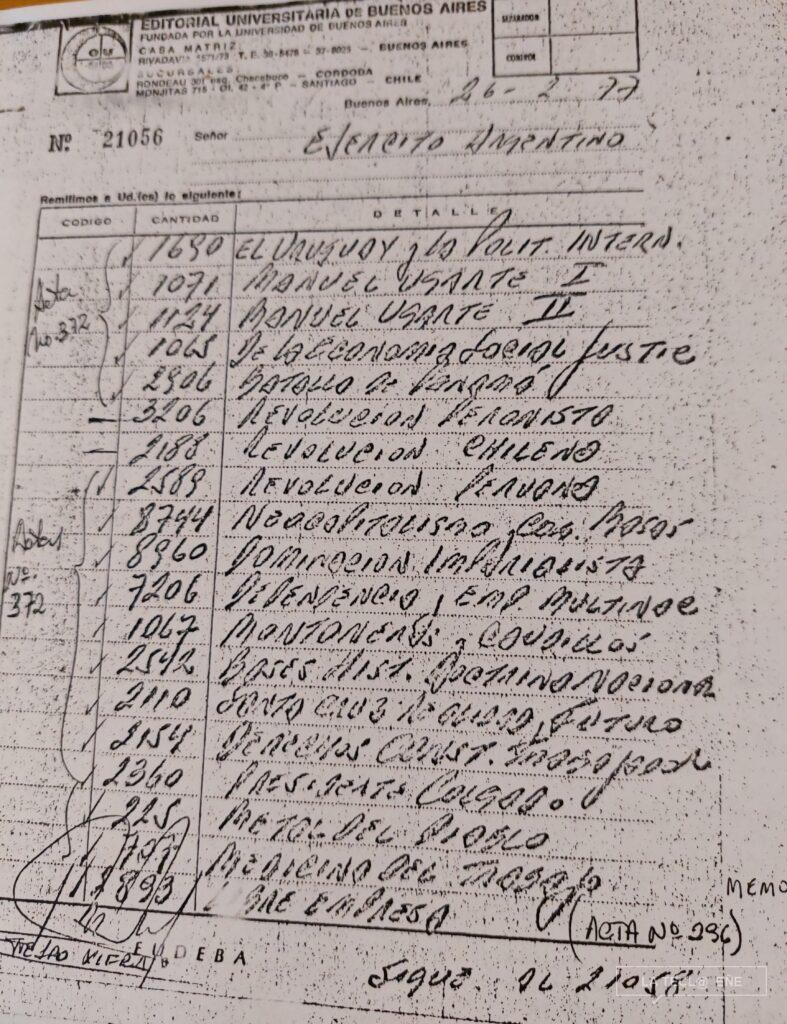 EDITORIAL UNIVERSITARIA DE BUENOS AIRES
FUNDADA POR LA UNIVERSIDAD DE BUENOS AIRES
CASA MATRIZ
RIVADAVIA 1571/73 T. E. 38-8478 - 37-8025 — BUENOS AIRES
SUCURSALES
RONDEAU 301 esq. Chacabuco — CORDOBA
MONJITAS 715 - Of. 42 - 4º P - SANTIAGO — CHILE
SEPARADOR
CONTROL
Buenos Aires, 26 - 2 77
Nº 21056 Señor EJERCITO ARGENTINO
Remitimos a Ud.(es) lo siguiente:
CODIGO CANTIDAD DETALLE
1690 EL URUGUAY y la POLIT. INTERN.
1071 MANUEL UGARTE I
1124 MANUEL UGARTE II
1065 DE LA ECONOMIA SOCIAL JUSTIC
2906 BATALLA DE PANAMÁ
Acta No. 372
3206 REVOLUCION PERONISTA
2188 REVOLUCION CHILENA
2589 REVOLUCION PERUANA
8744 NEOCAPITALISMO BASAS
8960 DOMINACION IMPERIALISTA
7206 DEPENDENCIA, EMP. MULTINAC
1067 MONTONEROS y CAUDILLOS
2542 BASES HIST. DOCTRINA NACIONAL
2110 SANTA CRUZ REALIDAD, FUTURO
2154 DERECHOS CONST. TRABAJADOR
2360 PRESIDENTE COLGADO.
Nº. 372
225 METAL DEL DIABLO
MEDICINA DEL TRABAJO
893 LIBRE EMPRESA
MEMO
(ACTA Nº 296)
EUDEBA
SIGUE AL 21058